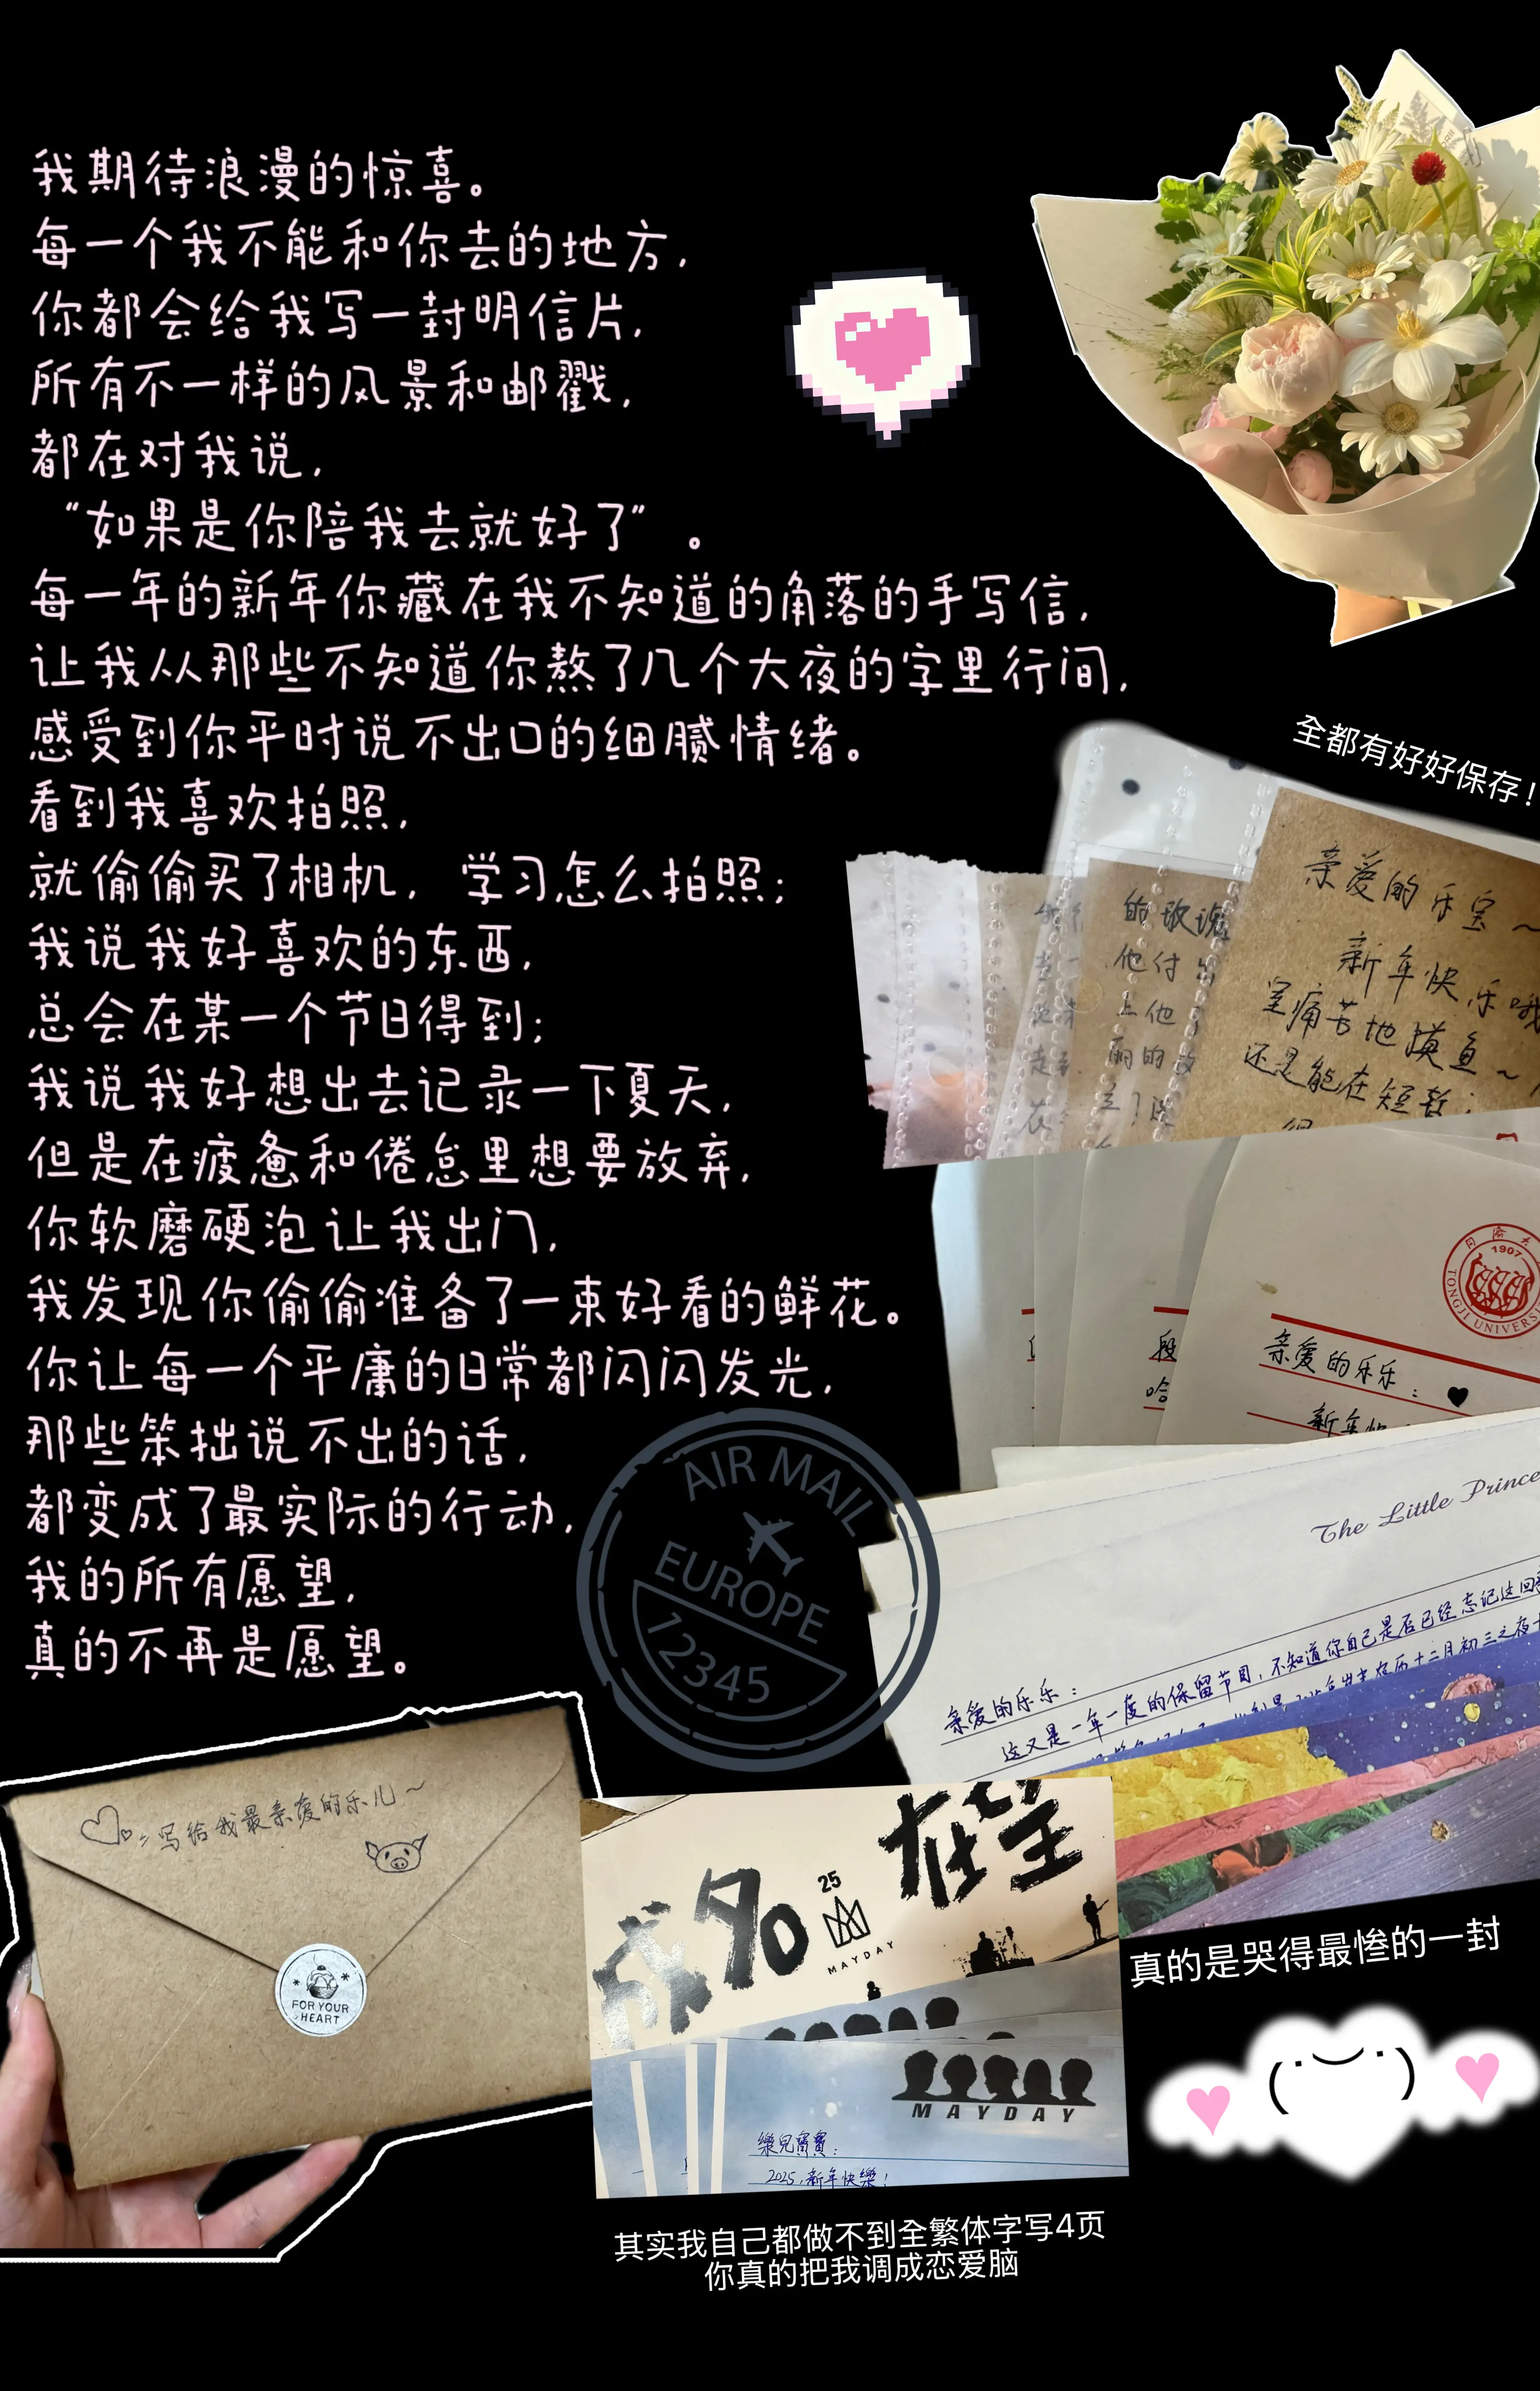 我期待浪漫的惊喜。
每一个我不能和你去的地方,
你都会给我写一封明信片,
所有不一样的风景和邮戳,
都在对我说,
“如果是你陪我去就好了”。
每一年的新年你藏在我不知道的角落的手写信,
让我从那些不知道你熬了几个大夜的字里行间,
感受到你平时说不出口的细腻情绪。
看到我喜欢拍照,
就偷偷买了相机, 学习怎么拍照;
我说我好喜欢的东西,
总会在某一个节日得到;
我说我好想出去记录一下夏天,
但是在疲惫和倦怠里想要放弃,
你软磨硬泡让我出门,
我发现你偷偷准备了一束好看的鲜花。
你让每一个平庸的日常都闪闪发光,
那些笨拙说不出的话,
都变成了最实际的行动,
我的所有愿望,
真的不再是愿望。
全都有好好保存!
亲爱的乐宝~
新年快乐哦
痛苦地摸鱼~
还是能在短暂
的玫瑰
他付出
上他
丽的玫
1907
TONGJI UNIVERS
亲爱的乐乐:♥
新年快
段
哈
The Little Prince
亲爱的乐乐:
这又是一年一度的保留节目,不知道你自己是否已经忘记这回
AIR MAIL
EUROPE
12345
写给我最亲爱的乐儿~
FOR YOUR
HEART
成名在望
25
MAYDAY
MAYDAY
樂兒寶寶:
2025,新年快樂!
真的是哭得最惨的一封
(˙︶˙)
其实我自己都做不到全繁体字写4页
你真的把我调成恋爱脑